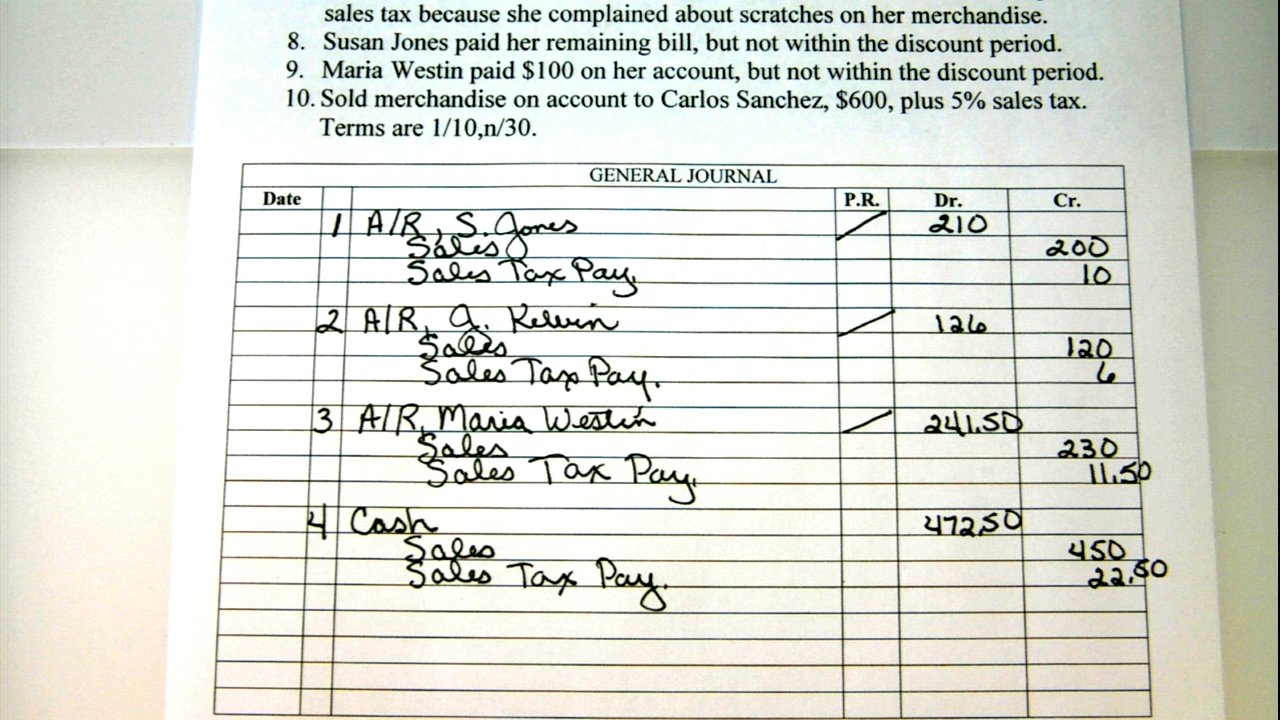 sales tax because she complained about scratches on her merchandise.
8. Susan Jones paid her remaining bill, but not within the discount period.
9. Maria Westin paid $100 on her account, but not within the discount period.
10. Sold merchandise on account to Carlos Sanchez, $600, plus 5% sales tax.
Terms are 1/10,n/30.
GENERAL JOURNAL
Date P.R. Dr. Cr.
1 A/R, S. Jones 210
Sales 200
Sales Tax Pay. 10
2 A/R, J. Kelvin 126
Sales 120
Sales Tax Pay. 6
3 A/R, Maria Westin 241.50
Sales 230
Sales Tax Pay. 11.50
4 Cash 472.50
Sales 450
Sales Tax Pay. 22.50